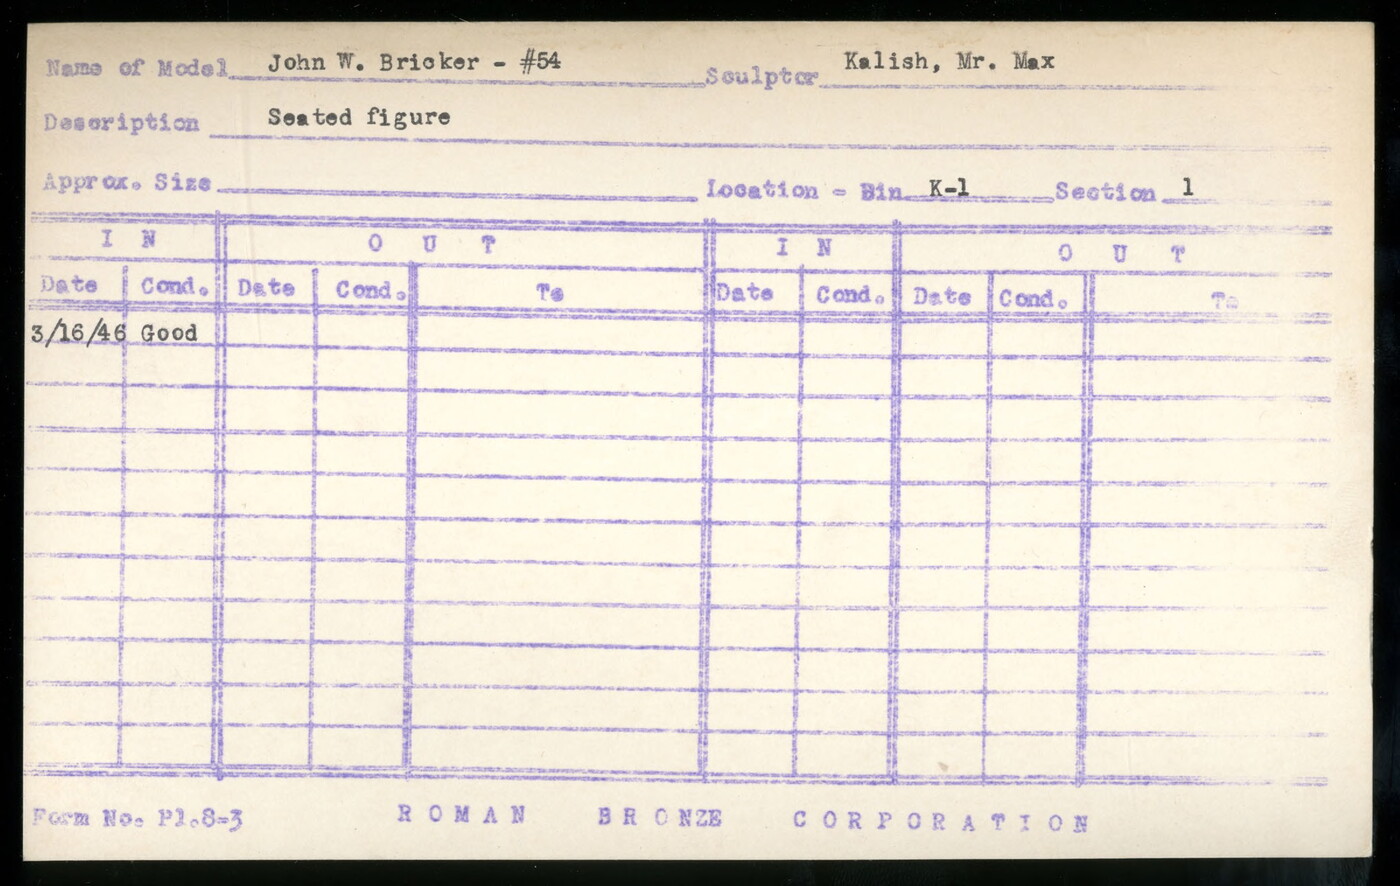 Name of Model John W. Bricker - #54 Sculptor Kalish, Mr. Max
Description Seated figure
Approx. Size Location - Bin K-1 Section 1
IN OUT IN OUT
Date Cond. Date Cond. To Date Cond. Date Cond. To
3/16/46 Good
Form No. Pl.8-3 ROMAN BRONZE CORPORATION